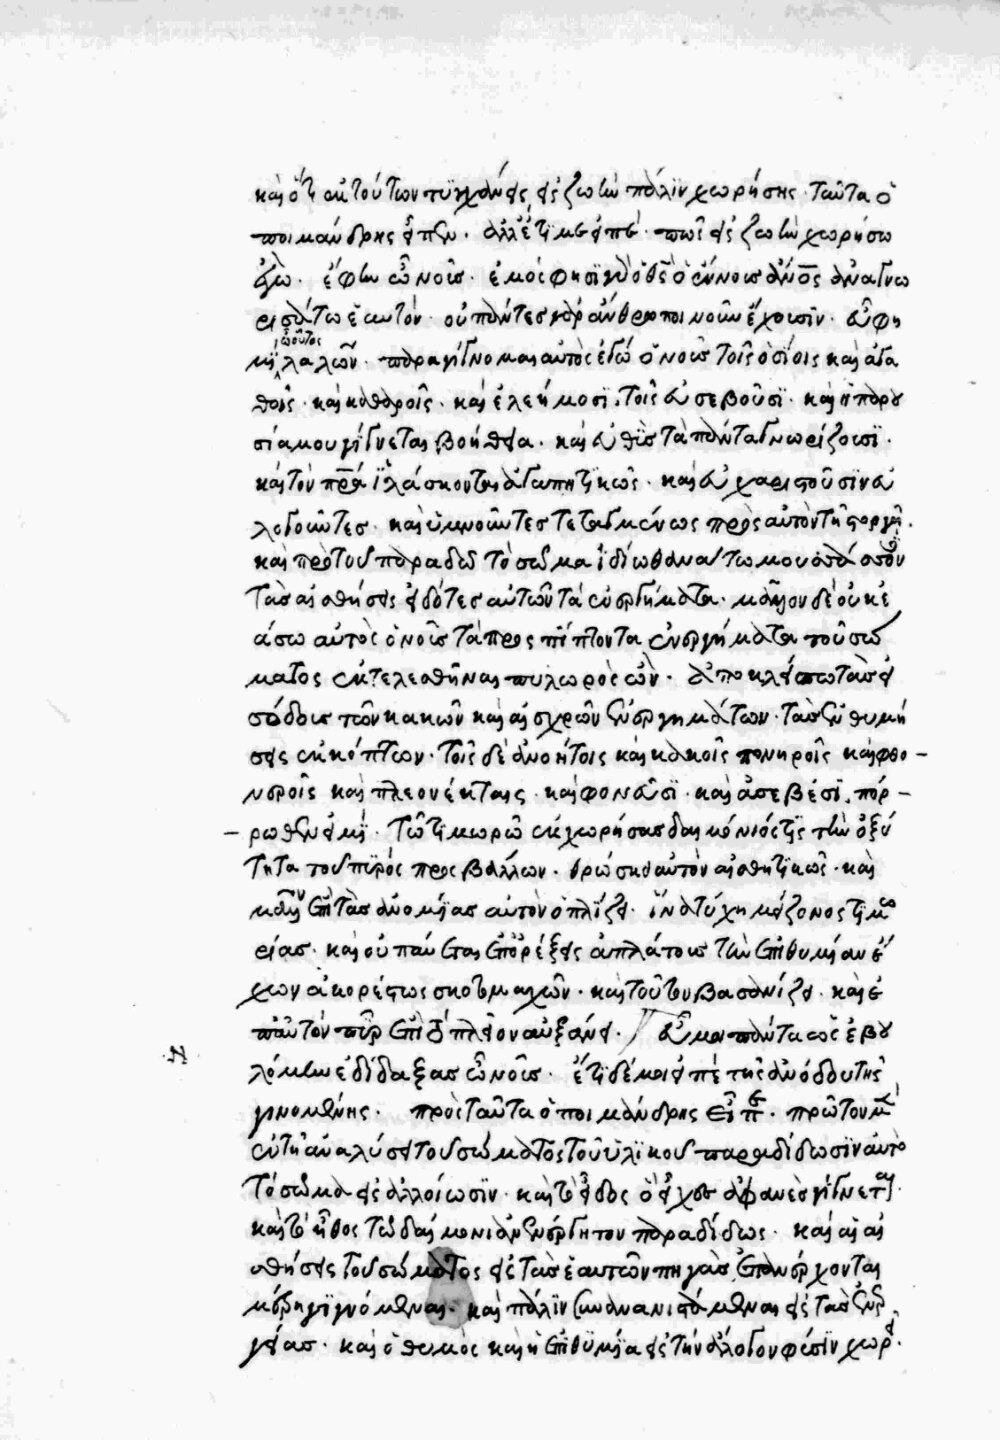 καὶ ὅτι ἐκ τούτων τυγχάνεις, εἰς ζωὴν πάλιν χωρήσης· ταῦτα ὁ
ποιμάνδρης εἶπεν· ἀλλ' ἔτι μοι εἰπὲ· πῶς εἰς ζωὴν χωρήσω
ἐγὼ· ἔφην ὦ νοῦς· ἐμοὶ φησὶ γὰρ ὁ θς ὁ ἔννους ἄνος ἀναγνω
ρισάτω ἑαυτόν· οὐ πάντες γὰρ ἄνθρωποι νοῦν ἔχουσιν· εὐφη
μει ὦ οὗτος λαλῶν· παραγίγνομαι αὐτὸς ἐγώ ὁ νοῦς τοῖς ὁσίοις καὶ ἀγα
θοῖς· καὶ καθαροῖς· καὶ ἐλεήμοσι, τοῖς εὐσεβοῦσι· καὶ ἡ παρου
σία μου γίγνεται βοήθεια· καὶ εὐθὺς τὰ πάντα γνωρίζουσι·
καὶ τὸν πρα ἱλάσκονται ἀγαπητικῶς· καὶ εὐχαριστοῦσιν εὐ
λογοῦντες· καὶ ὑμνοῦντες τεταγμένως πρὸς αὐτὸν τῇ στοργῇ.
καὶ πρὸ τοῦ παραδοῦ τὸ σῶμα ἰδίω θανάτω μυσάττον
τὰς αἰσθήσεις εἰδότες αὐτῶν τὰ ἐνεργήματα· μᾶλλον δὲ οὐκ ἐ
άσω αὐτὸς ὁ νοῦς τὰ προσπίπτοντα ἐνεργήματα τοῦ σώ
ματος ἐκτελεσθῆναι πυλωρὸς ὢν· ἀποκλείσω τὰς εἰ
σόδους τῶν κακῶν καὶ αἰσχρῶν ἐνεργημάτων· τὰς ἐνθυμή
σεις ἐκκόπτων· τοῖς δὲ ἀνοήτοις καὶ κακοῖς πονηροῖς καὶ φθο –
νεροῖς καὶ πλεονέκταις· καὶ φονεῦσι· καὶ ἀσεβέσι, πόρ –
– ρωθεν εἰμί· τῶ τιμωρῶ ἐκχωρήσας δαιμόνι ὅστις τὴν ὀξύ
τητα τοῦ πυρὸς προσβάλλων· θρώσκει αὐτὸν αἰσθητικῶς· καὶ
μᾶλλον ἐπὶ τὰς ἀνομίας αὐτὸν ὁπλίζει· ἵνα τύχη μείζονος τιμω
ρίας· καὶ οὐ παύεται ἐπ' ὀρέξεις ἀπλάτους τὴν ἐπιθυμίαν ἔ
χων ἀκορέστως σκοτομαχῶν· καὶ τοῦτον βασανίζει· καὶ ἐ
π' αὐτὸν πῦρ ἐπὶ τὸ πλεῖον αὐξάνει· εὖ μοι πάντα ὡς ἐβου
λόμην ἐδίδαξας ὦ νοῦς· ἔτι δέ μοι εἰπὲ τῆς ἀνόδου τῆς
γινομένης· πρὸς ταῦτα ὁ ποιμάνδρης εἶπε· πρῶτον μὲν
ἐν τῇ ἀναλύσει τοῦ σώματος τοῦ ὑλικοῦ παραδίδωσιν αὐτὸ
τὸ σῶμα εἰς ἀλλοίωσιν· καὶ τὸ εἶδος ὃ εἶχες ἀφανὲς γίγνεται.
καὶ τὸ ἦθος τῶ δαίμονι ἀνενέργητον παραδίδως· καὶ αἱ αἰ
σθήσεις τοῦ σώματος εἰς τὰς ἑαυτῶν πηγὰς ἐπανέρχονται
μέρη γιγνόμεναι· καὶ πάλιν συνανιστάμεναι εἰς τὰς ἐνερ
γείας· καὶ ὁ θυμὸς καὶ ἡ ἐπιθυμία εἰς τὴν ἄλογον φύσιν χωρεῖ.